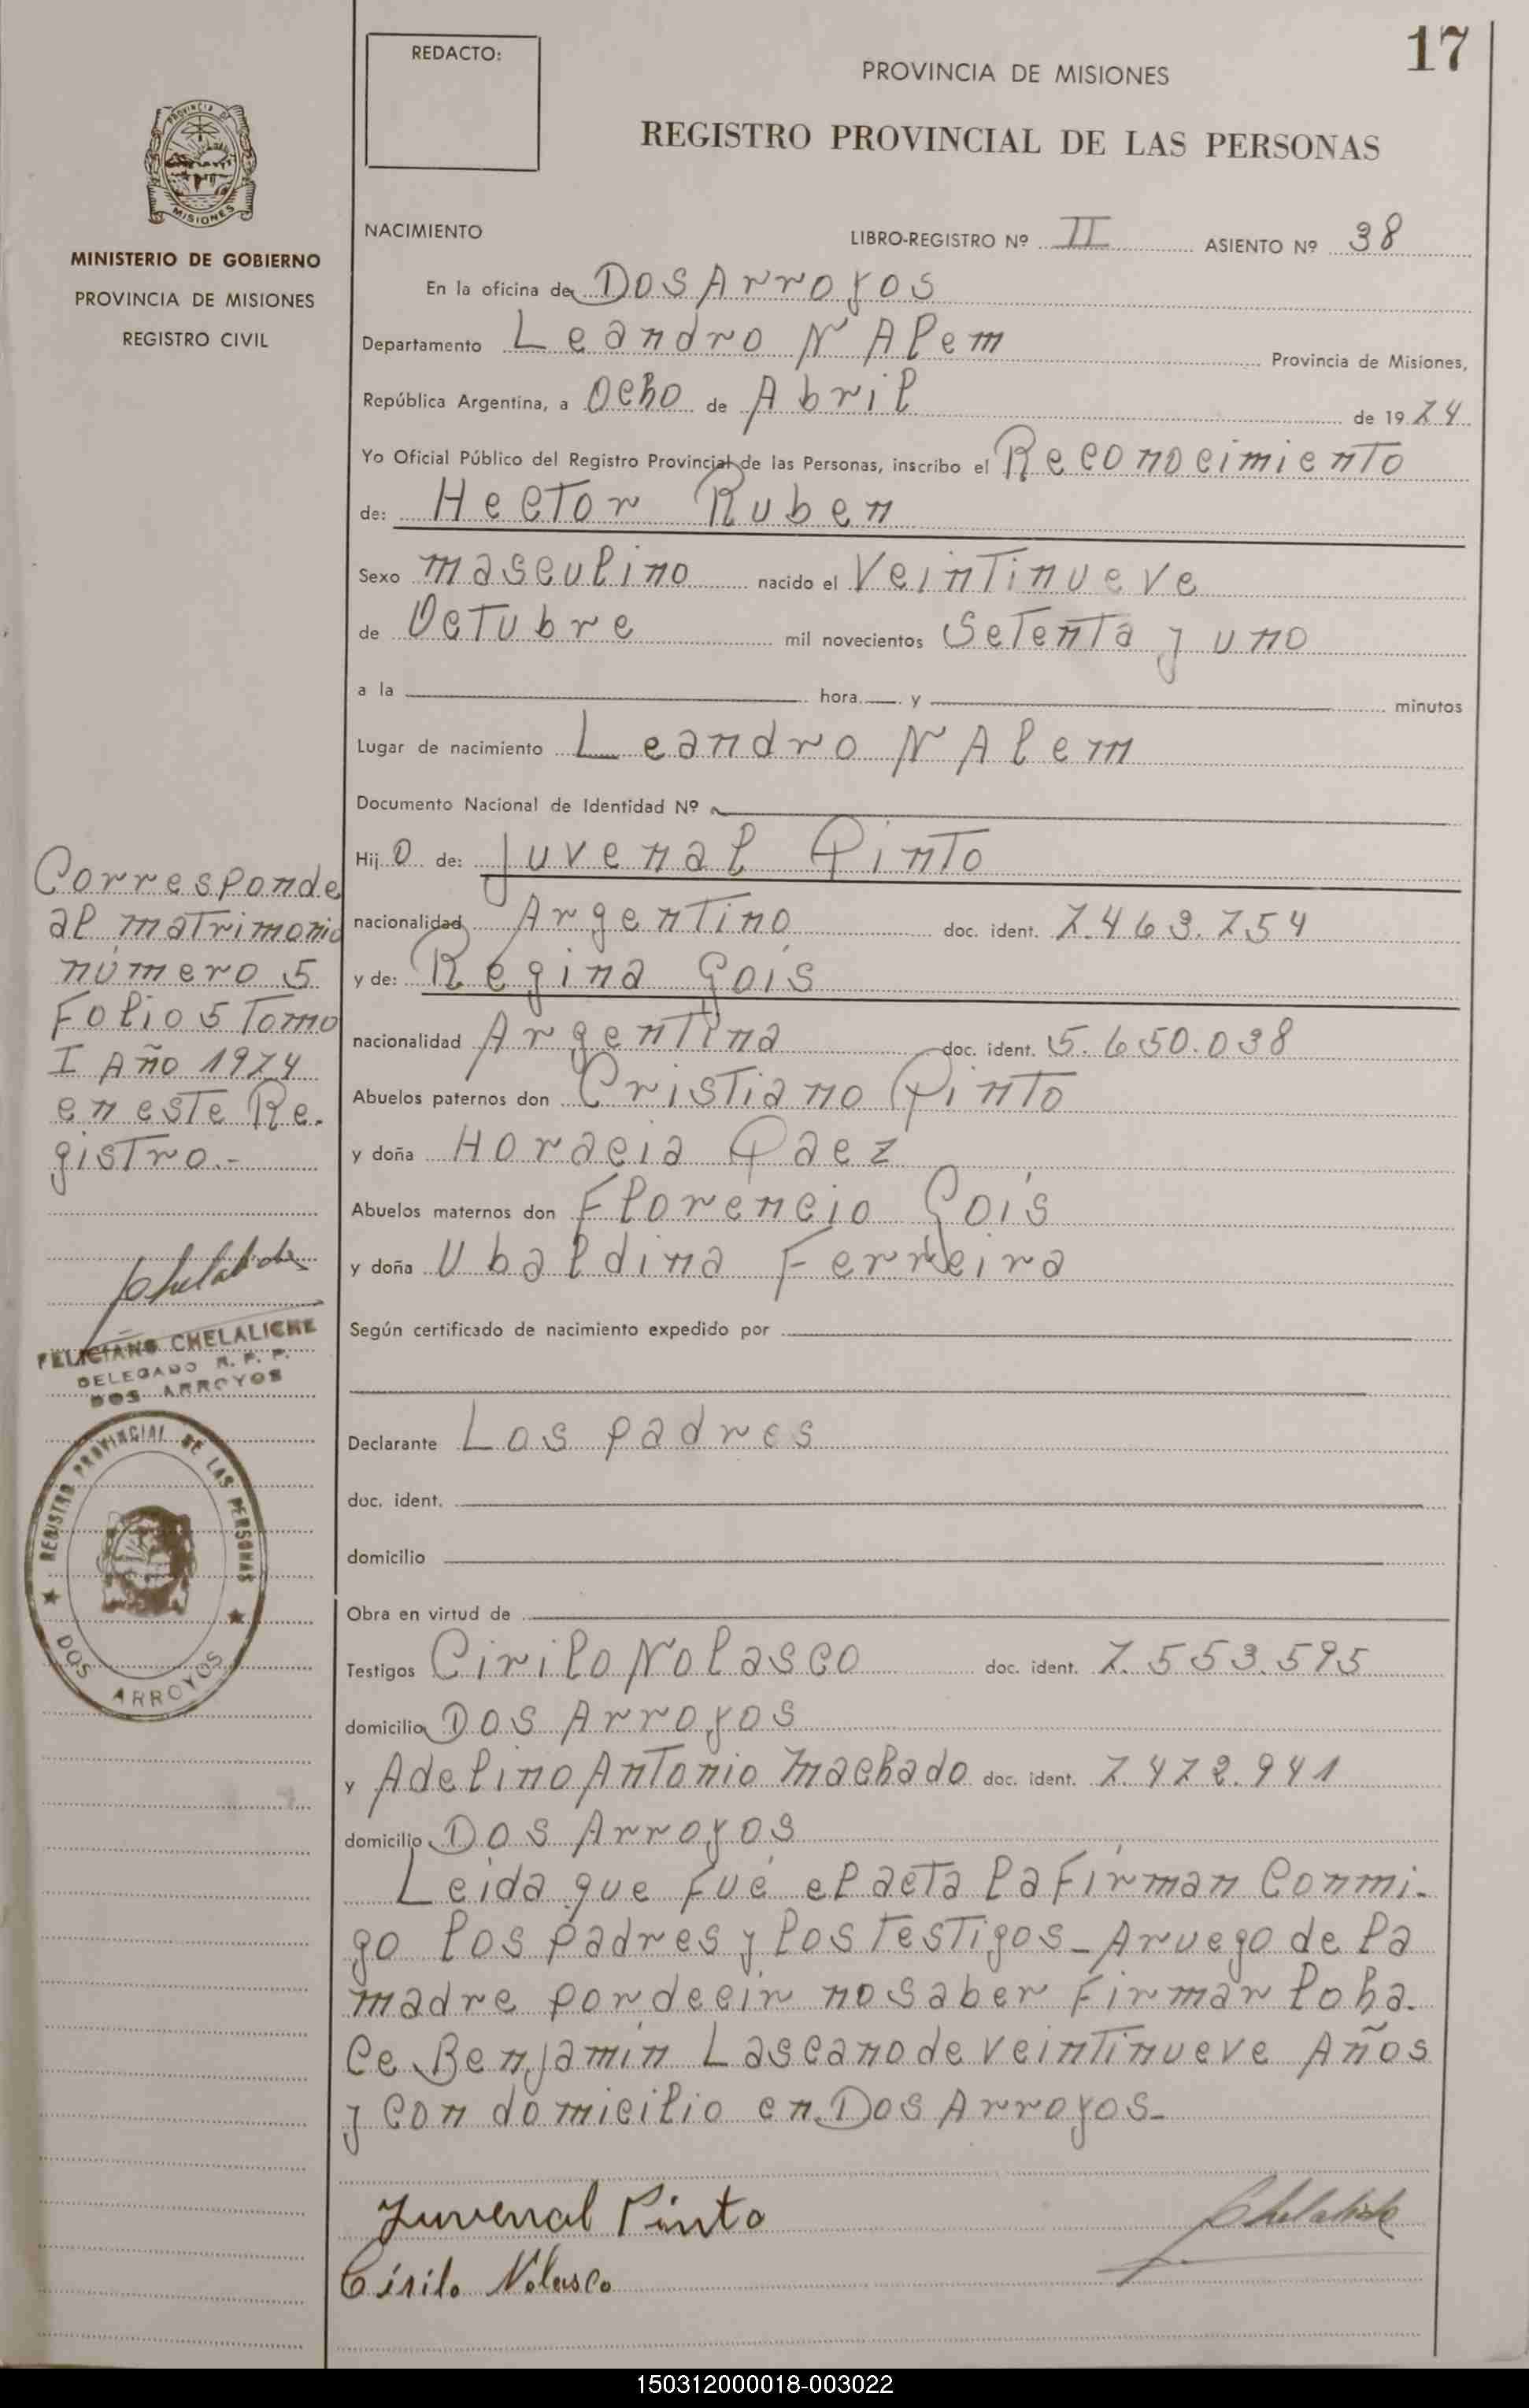 17
REDACTO:
PROVINCIA DE MISIONES
REGISTRO PROVINCIAL DE LAS PERSONAS
PROVINCIA DE
MISIONES
MINISTERIO DE GOBIERNO
PROVINCIA DE MISIONES
REGISTRO CIVIL
NACIMIENTO LIBRO-REGISTRO Nº II ASIENTO Nº 38
En la oficina de Dos Arroyos
Departamento Leandro N Alem Provincia de Misiones,
República Argentina, a Ocho de Abril de 1974
Yo Oficial Público del Registro Provincial de las Personas, inscribo el Reconocimiento
de: Hector Ruben
Sexo masculino nacido el Veintinueve
de Octubre mil novecientos Setenta y uno
a la hora y minutos
Lugar de nacimiento Leandro N Alem
Documento Nacional de Identidad Nº
Hijo de: Juvenal Pinto
nacionalidad Argentino doc. ident. 7.463.754
y de: Regina Gois
nacionalidad Argentina doc. ident. 5.650.038
Abuelos paternos don Cristiano Pinto
y doña Horacia Paez
Abuelos maternos don Florencio Gois
y doña Ubaldina Ferreira
Según certificado de nacimiento expedido por
Declarante Los padres
doc. ident.
domicilio
Obra en virtud de
Testigos Cirilo Nolasco doc. ident. 7.553.595
domicilio Dos Arroyos
y Adelino Antonio Machado doc. ident. 7.472.941
domicilio Dos Arroyos
Leida que fué el acta la firman conmi-
go los padres y los testigos - Aruego de la
madre por decir no saber firmar lo ha-
ce Benjamín Lascano de veintinueve Años
y con domicilio en Dos Arroyos-
Juvenal Pinto
Cirilo Nolasco
Chelaliche
Corresponde
al matrimonio
número 5
Folio 5 Tomo
I Año 1974
en este Re-
gistro.-
Chelaliche
FELICIANO CHELALICHE
DELEGADO R. P. P.
DOS ARROYOS
REGISTRO PROVINCIAL DE LAS PERSONAS
DOS ARROYOS
150312000018-003022